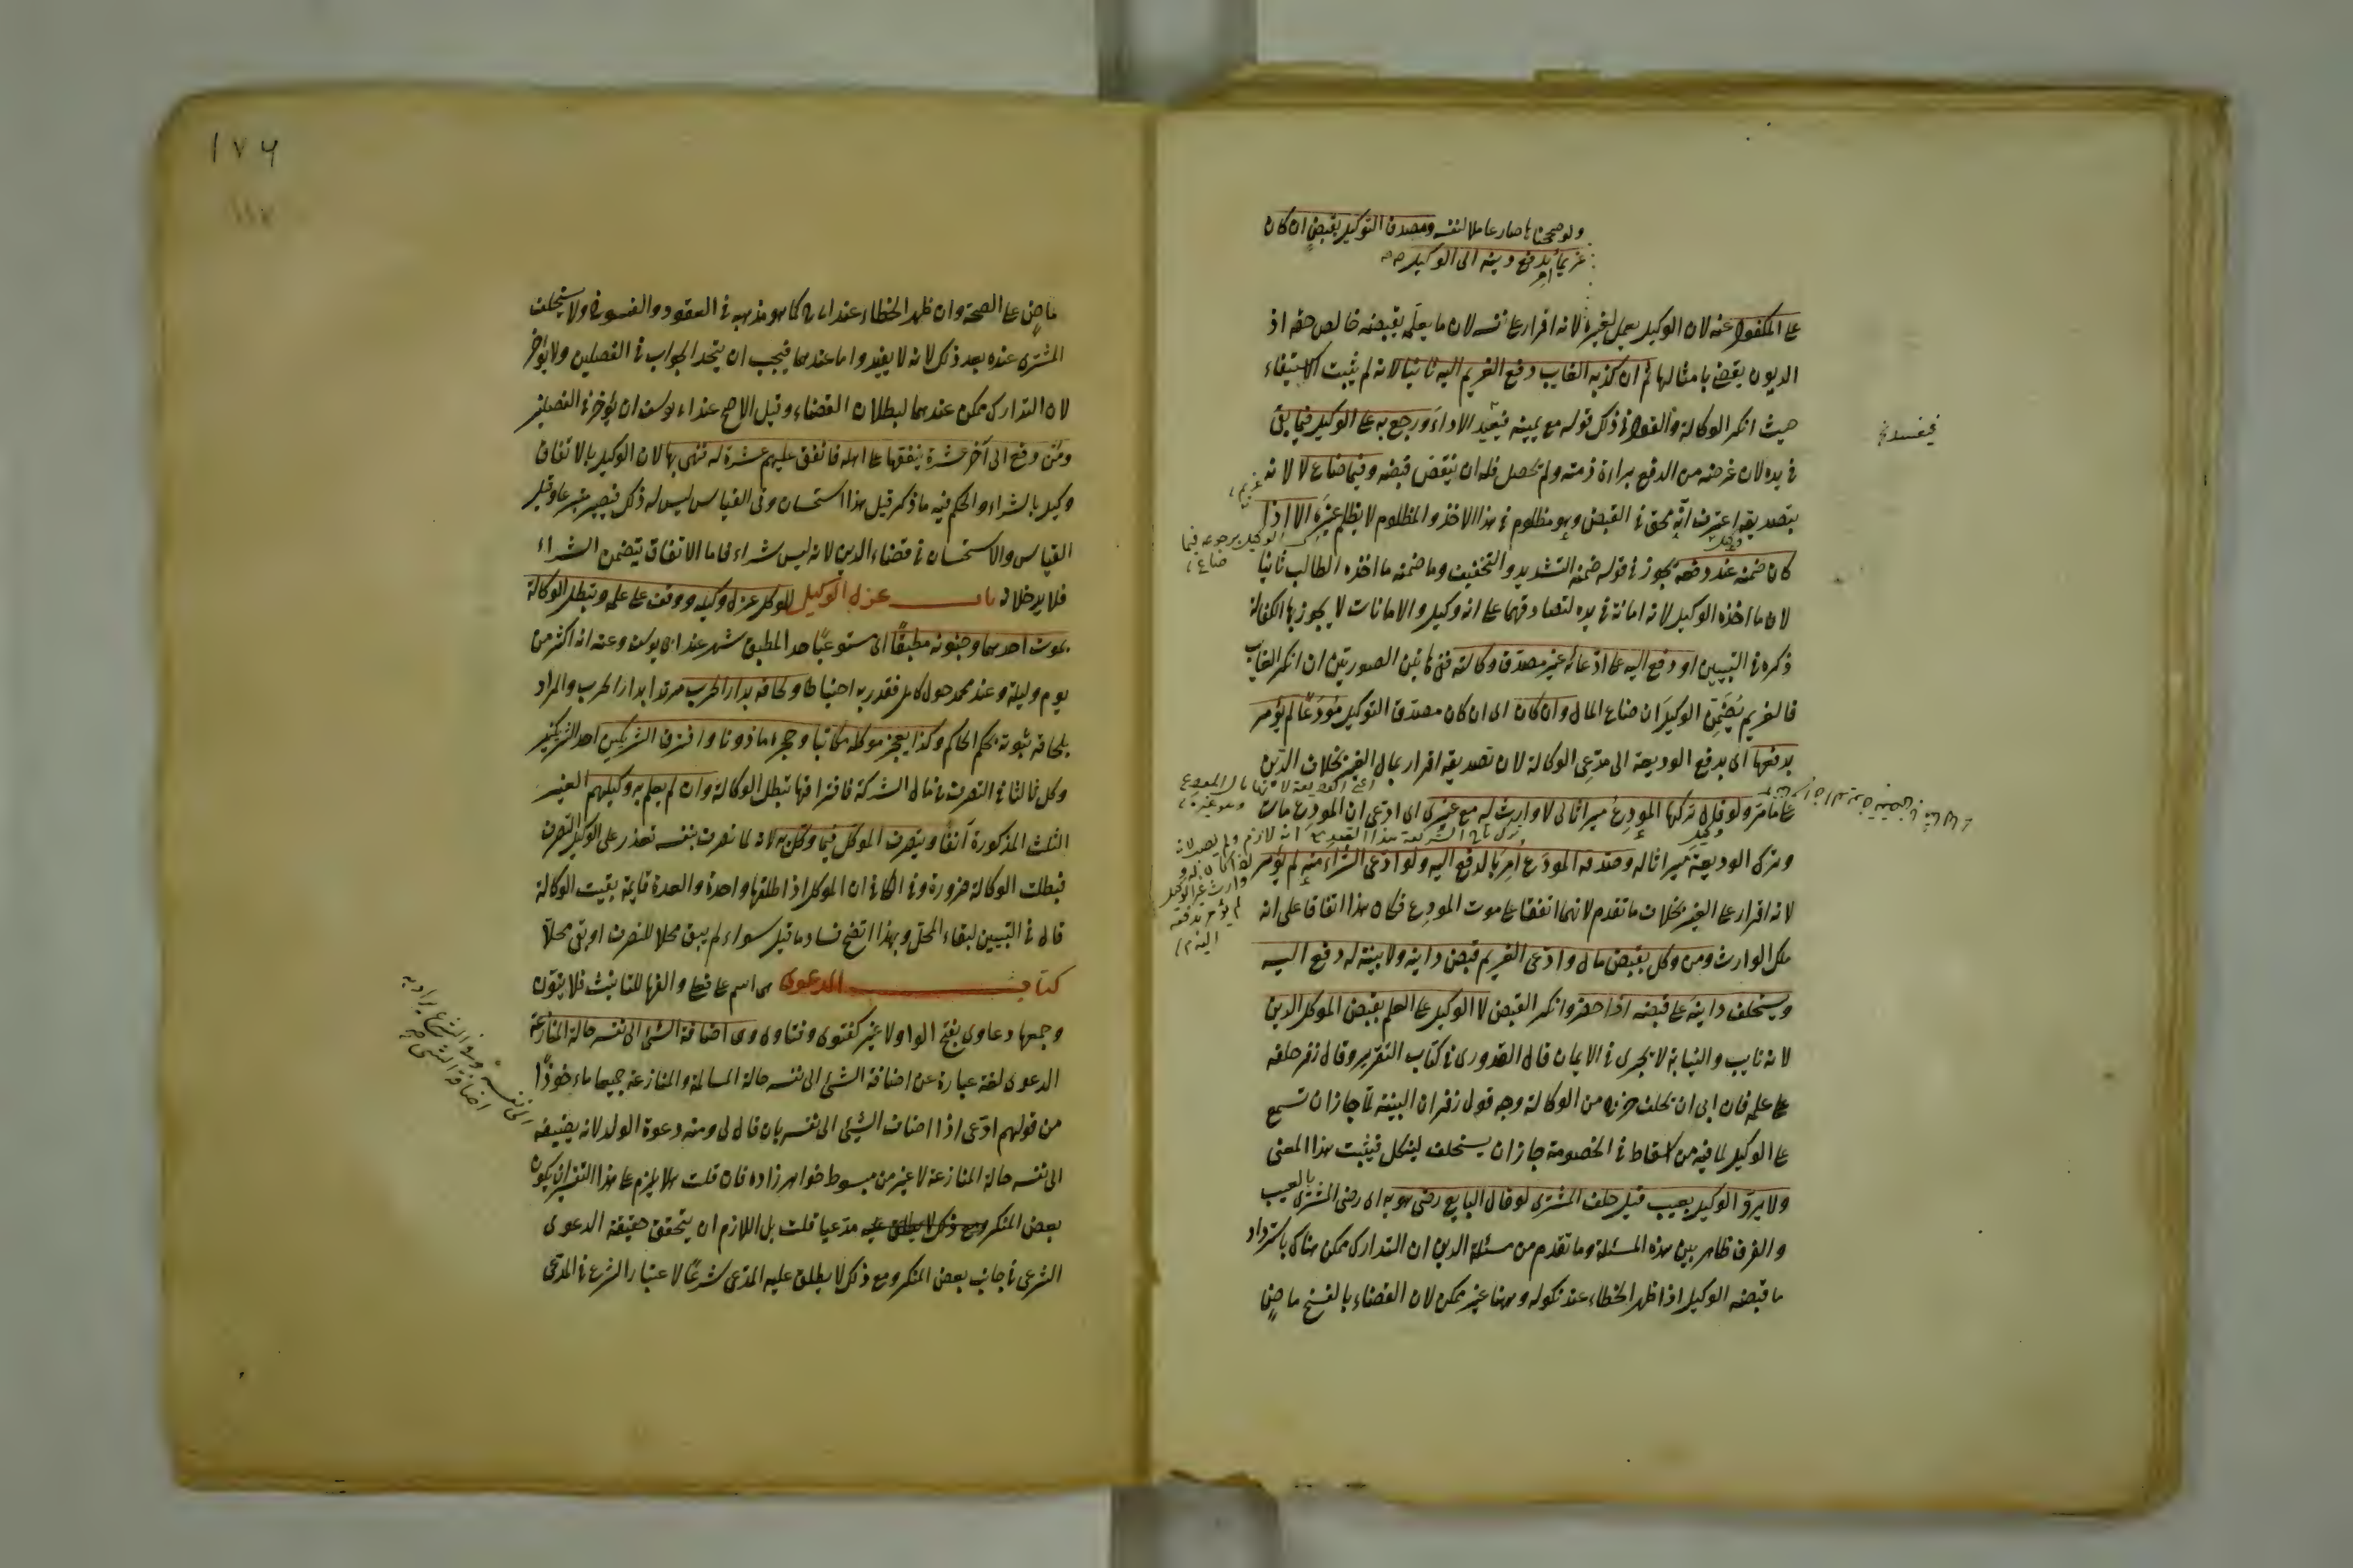 ولو صححناها صار عاملا لنفسه ومصدق التوكيل بقبض ان كان
غريما يدفع دينه الى الوكيل
على المكفول عنه لان الوكيل يعمل لغيره لانه اقرار على نفسه لان ما يعلم بقبضه خالص حقه اذ
الديون يقضى بامثالها ثم ان كذبه الغايب دفع الغريم اليه ثانيا لانه لم يثبت الاستيفاء
حيث انكر الوكالة والقول في ذلك قوله مع يمينه فيفيد الاداء ورجع به على الوكيل فيما بقى
في يده لان غرضه من الدفع براءة ذمته ولم تحصل فله ان ينقض قبضه وفيما ضاع لا لانه
بتصديقه اعترف انه محق في القبض وهو مظلوم في هذا الاخذ والمظلوم لا يظلم غيره الا اذا
كان ضمنه عند دفعه يجوز في قوله ضمنه التشديد والتخفيف وما ضمنه ما اخذه الطالب ثانيا
لان ما اخذه الوكيل لانه امانة في يده لتصادقهما على انه وكيل والامانات لا يجوز بها الكفالة
ذكره في التبيين او دفع اليه على ادعائه غير مصدق وكالته ففى هاتين الصورتين ان انكر الغايب
فالغريم يضمن الوكيل ان ضاع المال وان كان اى ان كان مصدق التوكيل مودعا لم يؤمر
بدفعها اى بدفع الوديعة الى مدعى الوكالة لان تصديقه اقرار بمال الغير بخلاف الدين
على ما مر ولو قال تركها المودع ميراثا لى لا وارث له مع غيرى اى ادعى ان المودع مات
وترك الوديعة ميراثا له وصدقه المودع امر بالدفع اليه ولو ادعى الشراء منه لم يؤمر
لانه اقرار على الغير بخلاف ما تقدم لانهما اتفقا على موت المودع فكان هذا اتفاقا على انه
ملك الوارث ومن وكل بقبض مال وادعى الغريم قبض داينه ولا بينة له دفع اليه
ويستحلف داينه على قبضه اذا حضر وانكر القبض لا الوكيل على العلم بقبض الموكل الدين
لانه نايب والنيابة لا تجرى في الايمان قال القدورى في كتاب التقريب وقال زفر حلفه
على علمه فان ابى ان يحلف خرج من الوكالة وجه قول زفر ان البينة لما جاز ان تسمع
على الوكيل لما فيه من اسقاط في الخصومة جاز ان يستحلف لينكل فيثبت هذا المعنى
ولا يرد الوكيل بعيب قبل حلف المشترى لو قال البايع رضى هو به اى رضى المشترى بالعيب
والفرق ظاهر بين هذه المسئلة وما تقدم من مسئلة الدين ان التدارك ممكن هناك باسترداد
ما قبضه الوكيل اذا ظهر الخطاء عند نكوله وههنا غير ممكن لان القضاء بالفسخ ماض
١٧٦
ماض على الصحة وان ظهر الخطاء عند ابى ح كما هو مذهبه في العقود والفسوخ ولا يستحلف
المشترى عنده بعد ذلك لانه لا يفيد واما عندهما فيجب ان يتحد الجواب في الفصلين ولا يؤخر
لان التدارك ممكن عندهما لبطلان القضاء وقيل الاصح عند ابى يوسف ان يؤخر في الفصلين
ومن دفع الى آخر عشرة ينفقها على اهله فانفق عليهم عشرة له فهى بها لان الوكيل بالانفاق
وكيل بالشراء والحكم فيه ما ذكر قيل هذا استحسان وفى القياس ليس له ذلك فيصير متبرعا وقيل
القياس والاستحسان في قضاء الدين لانه ليس شراء فاما الانفاق يتضمن الشراء
فلا يدخلان باب عزل الوكيل للموكل عزل وكيله ووقف على علمه وتبطل الوكالة
بموت احدهما وجنونه مطبقا اى مستوعبا حد المطبق شهر عند ابى يوسف وعنه انه اكثر من
يوم وليلة وعند محمد حول كامل فقدر به احتياطا ولحاقه بدار الحرب مرتدا بدار الحرب والمراد
بلحاقه ثبوته بحكم الحاكم وكذا بعجز موكله مكاتبا وحجره ماذونا وافتراق الشريكين احد الشريكين
وكل ثالثا في التصرف في مال الشركة فافتراقهما تبطل الوكالة وان لم يعلم به وكيلهم الغير
الثلث المذكورة آنفا ويتصرف الموكل فيما وكل به لانه لما تصرف بنفسه تعذر على الوكيل التصرف
فبطلت الوكالة ضرورة وفى الكافى ان الموكل اذا طلقها واحدة والعدة قايمة بقيت الوكالة
قال في التبيين لبقاء المحل وبهذا اتضح فساد ما قيل سواء لم يبق محلا للتصرف او بقى محلا
كتاب الدعوى هى اسم على فعلى والفها للتانيث فلا ينون
وجمعها دعاوى بفتح الواو لا غير كفتوى وفتاوى وهى اضافة الشئ الى نفسه حالة المنازعة
الدعوى لغة عبارة عن اضافة الشئ الى نفسه حالة المسالمة والمنازعة جميعا ماءخوذا
من قولهم ادعى اذا اضاف الشئ الى نفسه بان قال لى ومنه دعوة الولد لانه يضيفه
الى نفسه حالة المنازعة لا غير من مبسوط خواهرزاده فان قلت هلا يلزم على هذا التفسير ان يكون
بعض المنكر ومع ذلك لا يطلق عليه مدعيا قلت بل اللازم ان يتحقق حقيقة الدعوى
الشرعى في جانب بعض المنكر ومع ذلك لا يطلق عليه المدعى شرعا لاعتبار الشرع في المدعى